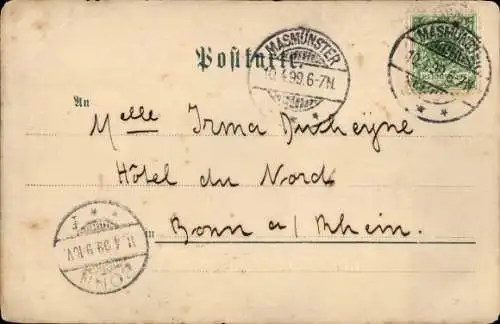 Postkarte
MASMÜNSTER
10.4.99.6-7N.
MASMÜNSTER
An
Melle Irma
Hôtel du Nord
in Bonn a/Rhein.
11.4.99.9-10.V
BONN